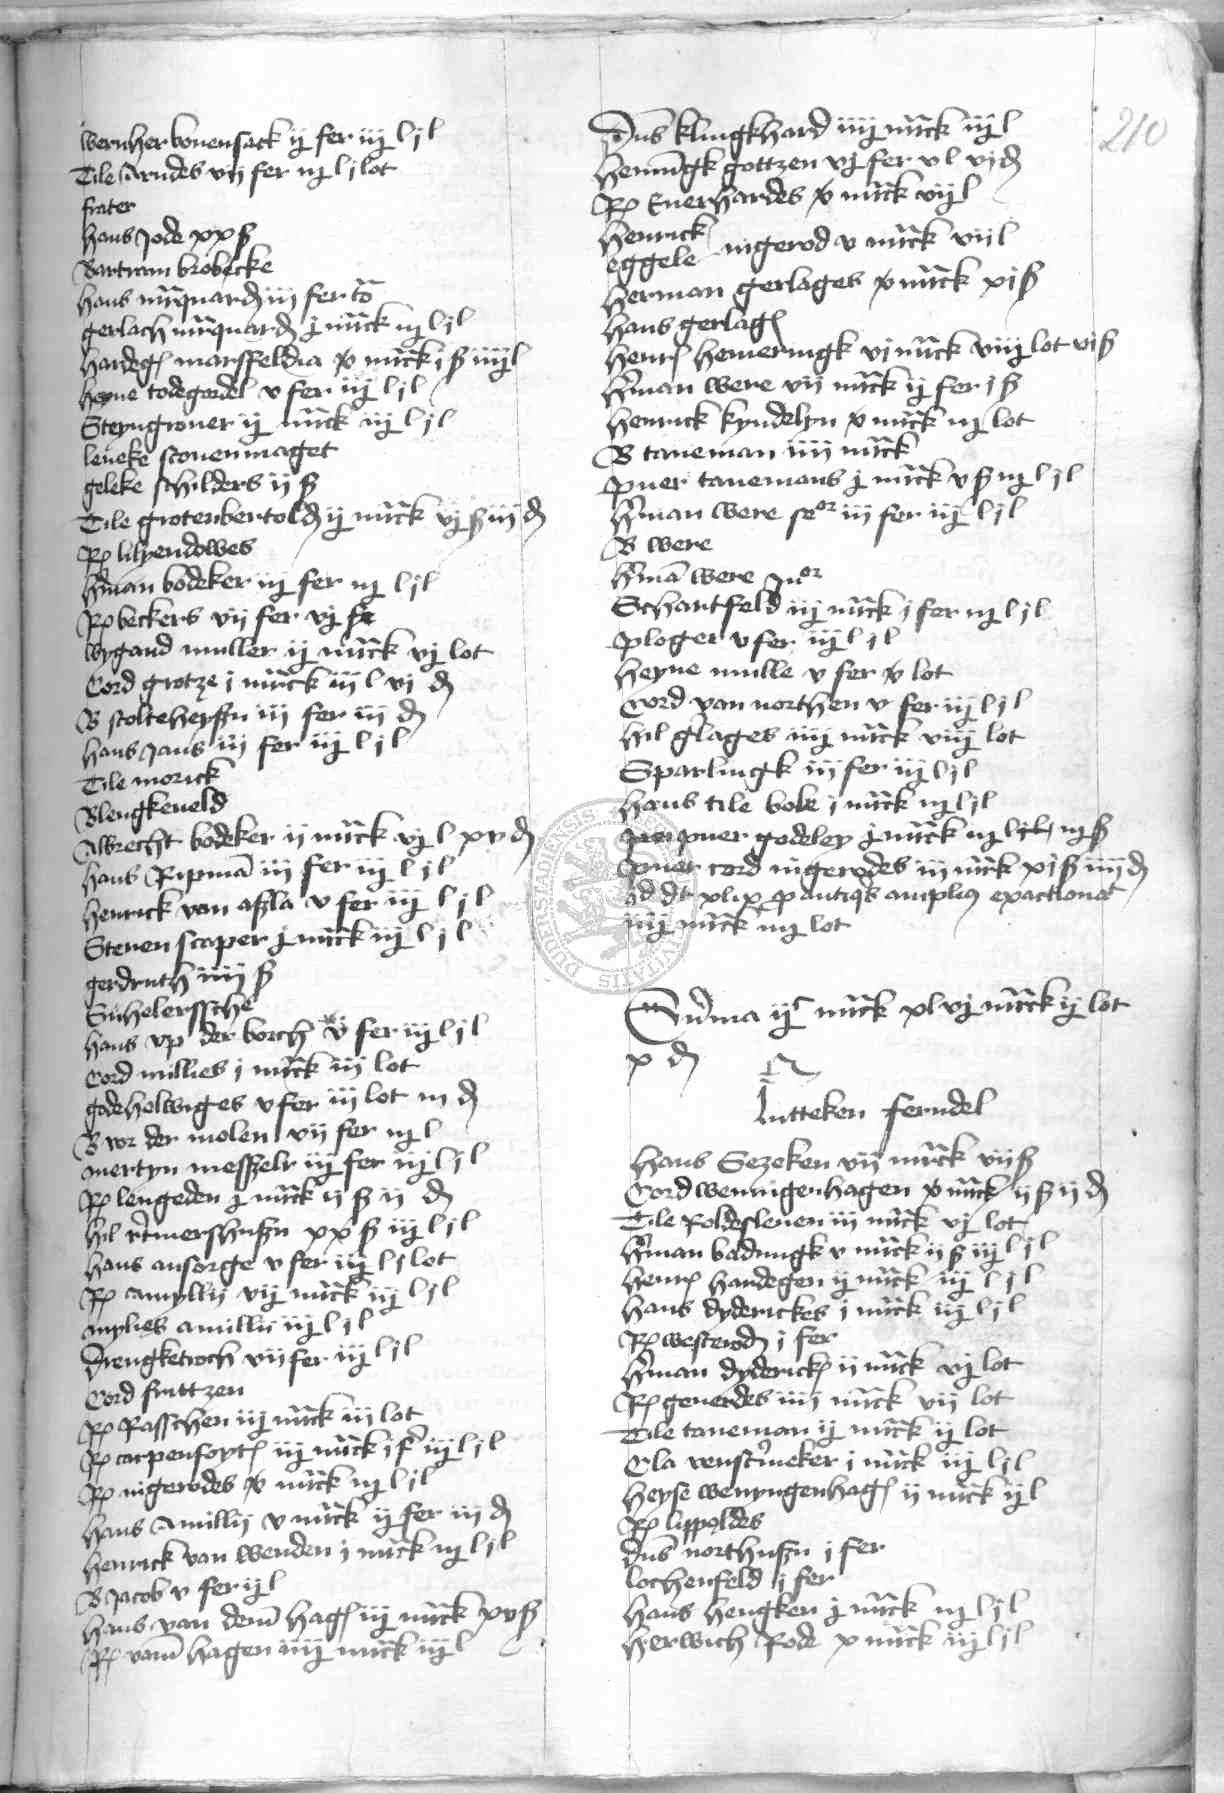 wernher bonensack ij fer iij l j l
Tile Arndes vij fer iij l j lot
frater
hans Jode xx ß
Bartram brobecke
hans mrquard iij fer
gerlach mrquard j mrck iij l j l
hardeg marsfeldia mrck j ß iiij l
heyne todegordel v fer iij l j l
Steyngrover ij mrck iij l j l
leneke stovenmaget
geleke schilders ij ß
Tile grotenbertold ij mrck vj ß iij d
Rp lilyendowes
hman bodeker iij fer iij l j l
Rp beckers vij fer vj
wygand muller ij mrck vj lot
Cord grotze j mrck iij l vj d
B stolteheyßn iij fer iij d
hans Jans iij fer iij l j l
Tile morick
Blengkeveld
Albrecht bodeker ij mrck vj l xv d
hans Ripma iij fer iij l j l
henrick van aßla v fer iij l j l
Steven scaper j mrck iij l j l
gerdruth iiij ß
hans vp der borch fer iij l j l
Cord millies j mrck iij lot
gode helwiges v fer iij lot iij d
B vor der molen vij fer iij l
mertyn meßzelr iij fer iij l j l
Rp lengeden j mrck ij ß ij d
hil rtmershußn xx ß iij l j l
hans ansorge v fer iij l j lot
Rp amyllij vij mrck iij l j l
mylies amillii iij l j l
Drengketroch vij fer iij l j l
Cord fruttzen
Rp Rasschen iij mrck iij lot
Rp carpensoyt iij mrck j f iij l j l
Rp nigerodes mrck iij l j l
hans Amillij v mrck ij fer iij d
henrick van wenden j mrck iij l j l
B Jacob v fer ij l
hans van dem hag iij mrck xv ß
Rp vam hagen iiij mrck iij l
210
Dns klingkhard iiij mrck iij l
henningk gottzen vj fer v l vj d
Rp Everhardes mrck vij l
henrick
eggele nigerod v mrck vij l
herman gerlages mrck xj ß
hans gerlag
henr hemeringk vj mrck viij lot vj ß
hman were vij mrck ij fer j ß
henrick kyndelyn mrck iij lot
B taneman iiij mrck
puer tanemans j mrck v ß iij l j l
hman were seor iij fer iij l j l
B were
hma were Juor
Schartfeld iij mrck j fer iij l j l
ploger v fer iij l j l
heyne mulle v fer lot
Cord van northen v fer iij l j l
hil glages iiij mrck viij lot
Sparlingk iij fer iij l j l
hans tile bole j mrck iij l j l
puer godeley j mrck iij l j l iij ß
puer cord nigerodes iij mrck xj ß iiij d
ad dt xlix p antiqs amplius exactionat
iiij mrck iij lot
Suma ijc mrck xlvj mrck ij lot
x d
lutteken ferndel
hans Sezeken vij mrck vij ß
Cord wenningenhagen mrck ij ß ij d
Tile Roldesleven iij mrck vj lot
hman badungk v mrck ij ß iij l j l
henr hardegen ij mrck iij l j l
hans dyderickes j mrck iij l j l
Rp westerod j fer
hman dyderick ij mrck vj lot
Rp geverdes iiij mrck vij lot
Tile taneman ij mrck ij lot
Cla venstmeker j mrck iij l j l
heyse wenyngenhag ij mrck ij l
Rp lippoldes
dns northußn j fer
lochenfeld j fer
hans hengken j mrck iij l j l
herwich Rode x mrck iij l j l